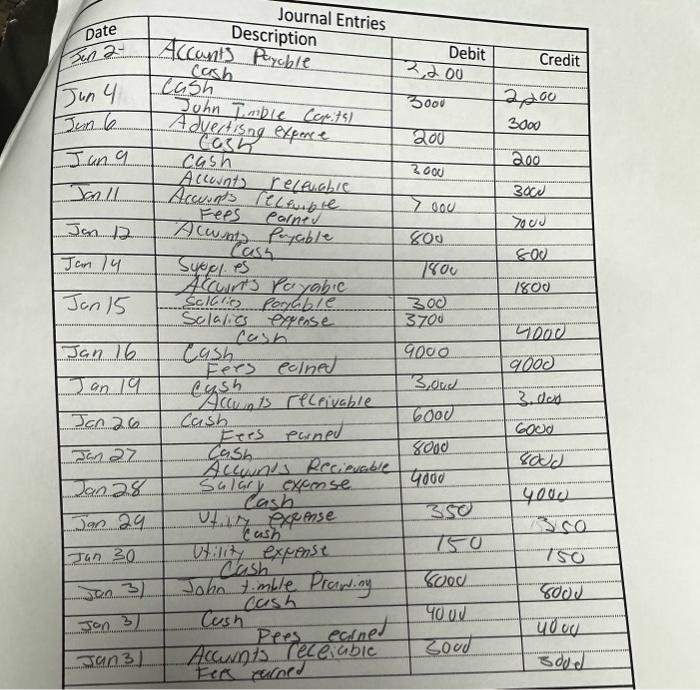 Journal Entries
Date Description Debit Credit
Jan 2 Accounts Payable 2,200
Cash 2,200
Jan 4 Cash 3000
John Timble Capital 3000
Jan 6 Advertisng expence 200
Cash 200
Jan 9 cash 3000
Accounts receivable 3000
Jan 11 Accounts receivable 7000
Fees earned 7000
Jan 12 Accounts Payable 800
Cash 800
Jan 14 Supplies 1800
Accounts Payable 1800
Jan 15 Salaries Payable 300
Salaries expense 3700
Cash 4000
Jan 16 Cash 9000
Fees earned 9000
Jan 19 Cash 3,000
Accounts receivable 3,000
Jan 26 Cash 6000
Fees earned 6000
Jan 27 Cash 8000
Accounts Recievable 8000
Jan 28 Salary expense 4000
Cash 4000
Jan 29 expense 350
Cash 350
Jan 30 Utility expense 150
Cash 150
Jan 31 John timble Drawing 8000
Cash 8000
Jan 31 Cash 4000
Fees earned 4000
Jan 31 Accounts receivable
Fees earned